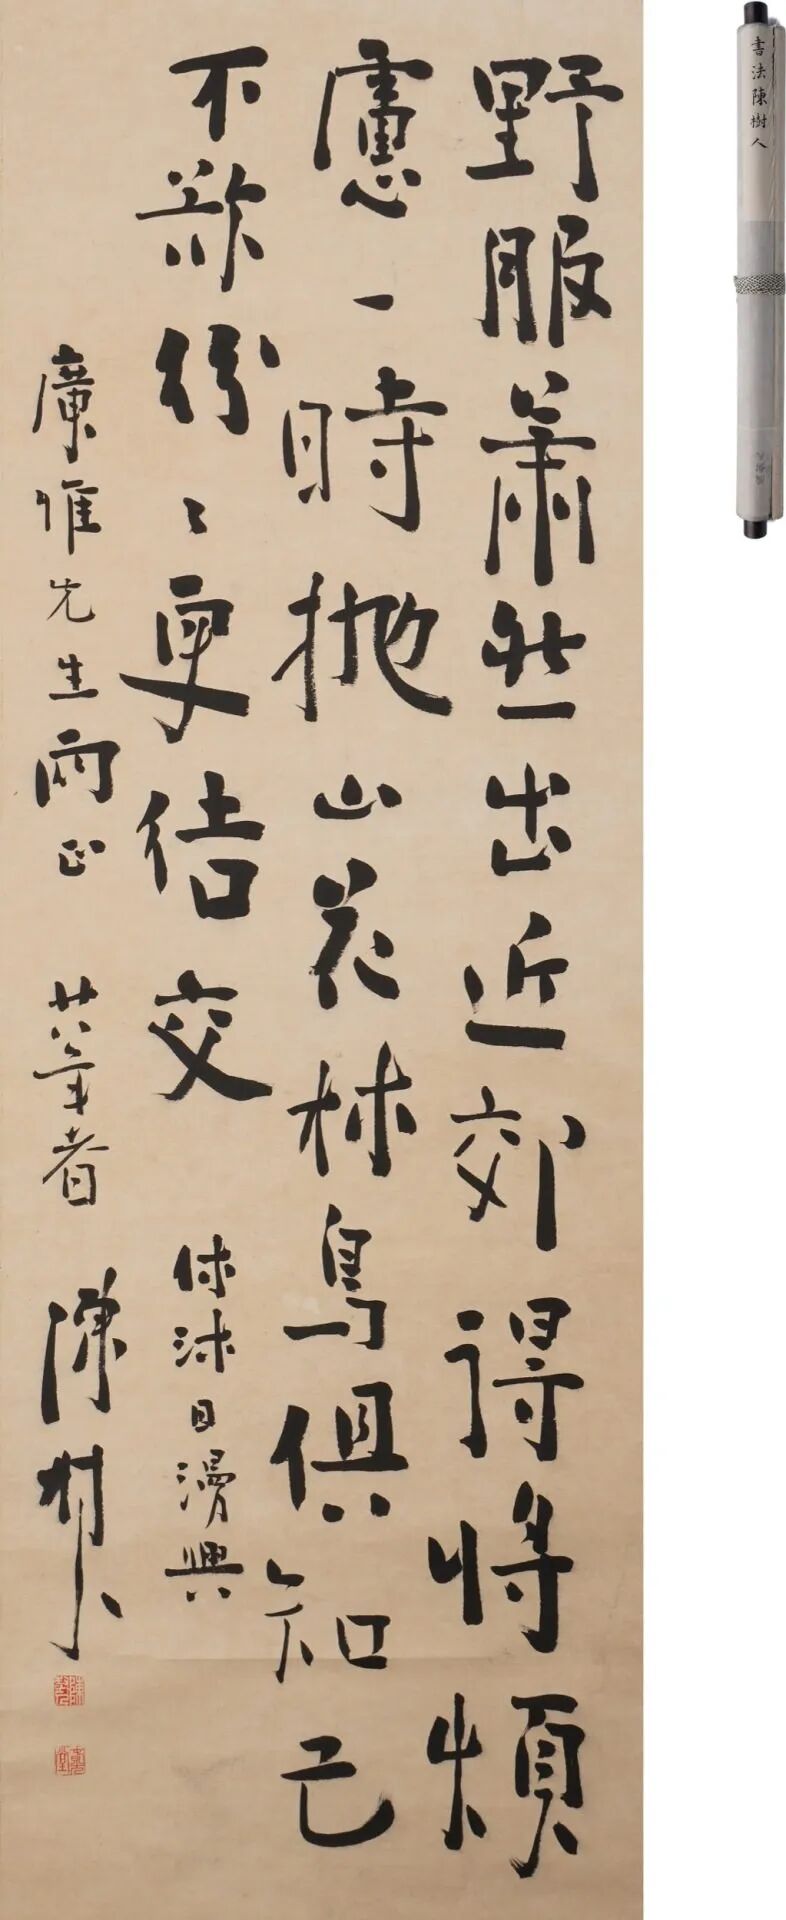 野服蕭然出近郊得將煩
慮一時拋山花林鳥俱知己
不欲紛〻更結交
休沐日漫興
廣惟先生兩正 廿八年春 陳樹人
書法陳樹人